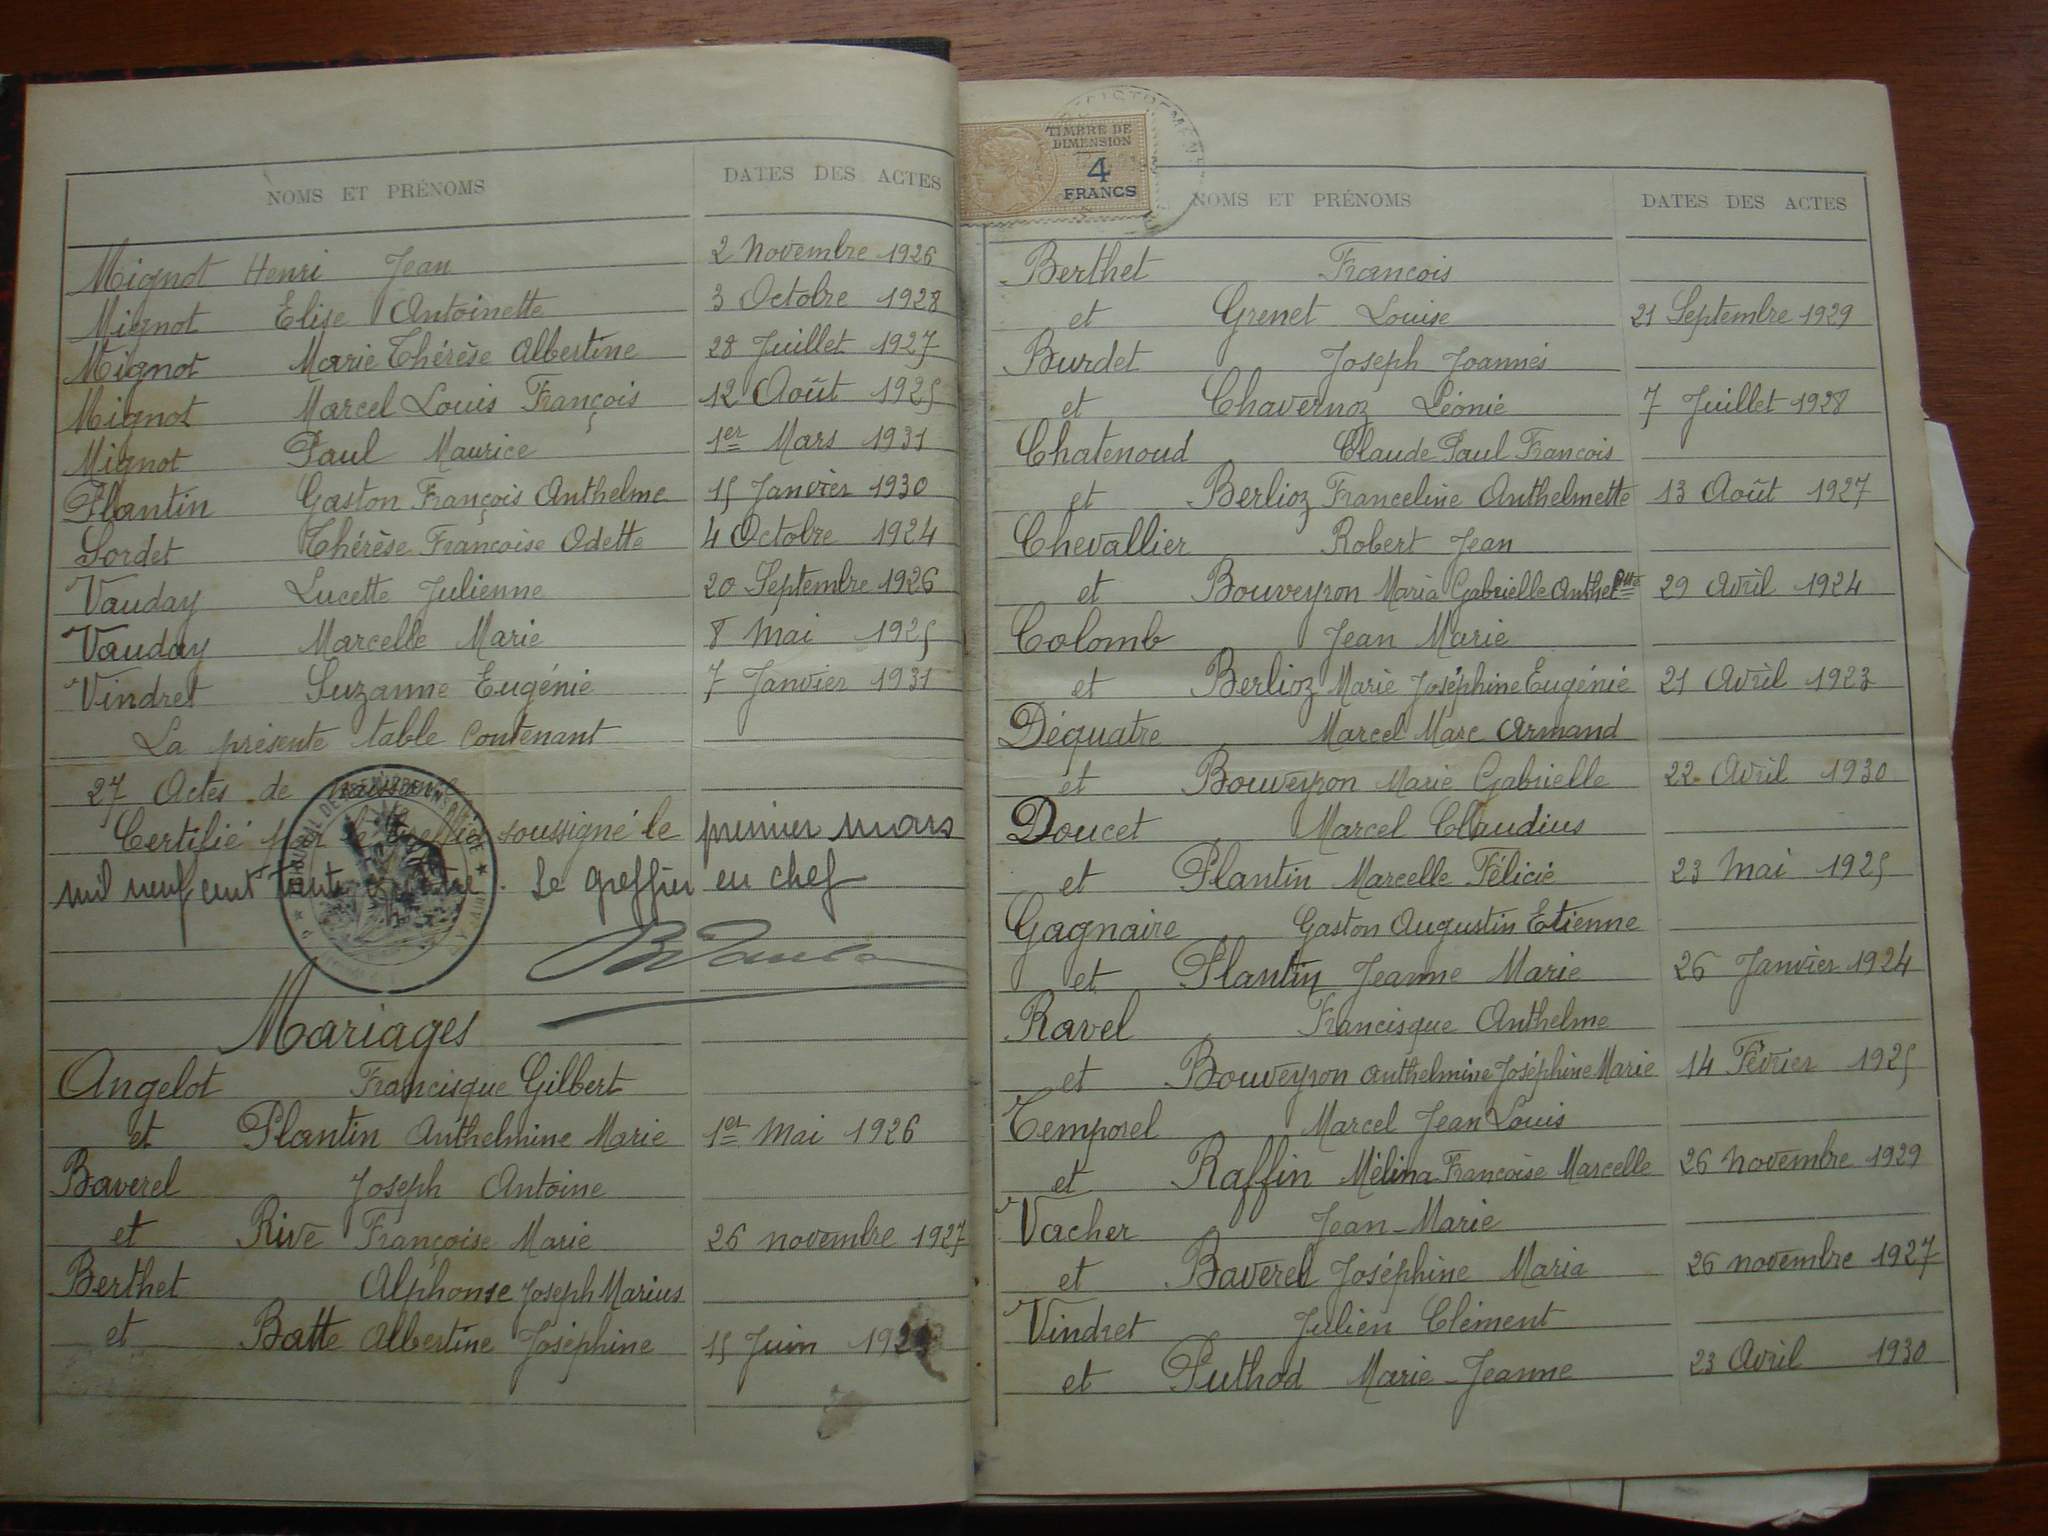 NOMS ET PRÉNOMS DATES DES ACTES
Mignot Henri Jean 2 Novembre 1926
Mignot Elise Antoinette 3 Octobre 1928
Mignot Marie Thérèse Albertine 28 Juillet 1927
Mignot Marcel Louis François 12 Août 1925
Mignot Paul Maurice 1er Mars 1931
Plantin Gaston François Anthelme 15 Janvier 1930
Sordet Thérèse Françoise Odette 4 Octobre 1924
Vauday Lucette Julienne 20 Septembre 1926
Vauday Marcelle Marie 8 Mai 1925
Vindret Suzanne Eugénie 7 Janvier 1931
La présente table contenant
27 Actes de naissance
Certifié par le greffier soussigné le premier mars
mil neuf cent trente . Le greffier en chef
Mariages
Angelot Francisque Gilbert
et Plantin Anthelmine Marie 1er Mai 1926
Baverel Joseph Antoine
et Rive Françoise Marie 26 novembre 1927
Berthet Alphonse Joseph Marius
et Batte Albertine Joséphine 15 Juin
TIMBRE DE
DIMENSION
4
FRANCS
NOMS ET PRÉNOMS DATES DES ACTES
Berthet François
et Grenet Louise 21 Septembre 1929
Burdet Joseph Joannès
et Chavernoz Léonie 7 Juillet 1928
Chatenoud Claude Paul François
et Berlioz Franceline Anthelmette 13 Août 1927
Chevallier Robert Jean
et Bouveyron Maria Gabrielle Antheltte 29 Avril 1924
Colomb Jean Marie
et Berlioz Marie Joséphine Eugénie 21 Avril 1923
Déquatre Marcel Marc Armand
et Bouveyron Marie Gabrielle 22 Avril 1930
Doucet Marcel Claudius
et Plantin Marcelle Félicie 23 Mai 1925
Gagnaire Gaston Augustin Etienne
et Plantin Jeanne Marie 26 Janvier 1924
Ravel Francisque Anthelme
et Bouveyron Anthelmine Joséphine Marie 14 Février 1925
Temporel Marcel Jean Louis
et Raffin Mélina Françoise Marcelle 26 novembre 1929
Vacher Jean-Marie
et Baverel Joséphine Maria 26 novembre 1927
Vindret Julien Clément
et Puthod Marie-Jeanne 23 Avril 1930